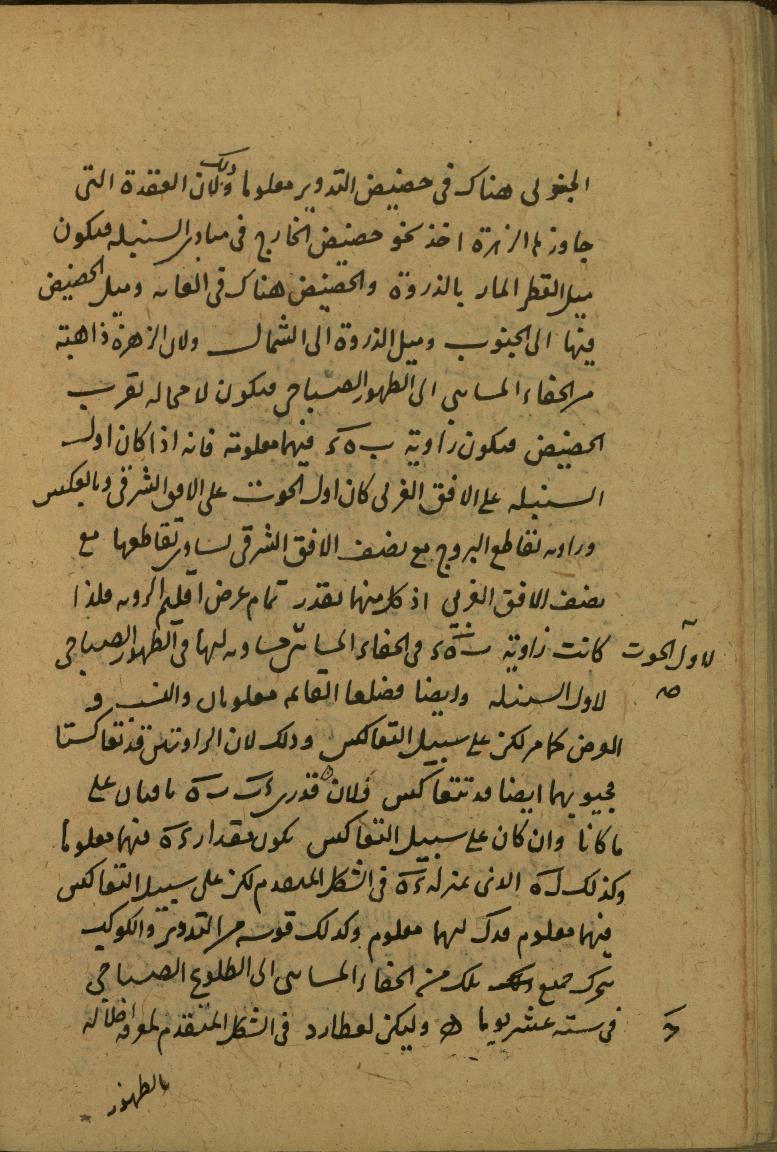 الجنوبى هناك فى حضيض التدوير معلوما وذلك لان العقدة التى
جاوزها الزهرة اخذ نحو حضيض الخارج فى مبادى السنبله فيكون
ميل القطر المار بالذروة والحضيض هناك فى الغايه وميل الحضيض
فيها الى الجنوب وميل الذروة الى الشمال ولان الزهرة ذاهبة
من الخفاء المسايى الى الظهور الصباحى فيكون لا محاله بقرب
الحضيض فيكون زاوية ب ه ء فيهما معلومة فانه اذا كان اول
السنبله على الافق الغربى كان اول الحوت على الافق الشرقى وبالعكس
وزاويه تقاطع البروج مع نصف الافق الشرقى يساوى تقاطعها مع
نصف الافق الغربى اذ كل منهما بقدر تمام عرض اقليم الرويه فلذا
كانت زاوية ب ه ء فى الخفاء المسايى مساويه لها فى الظهور الصباحى
لاول الحوت
لاول السنبله وايضا فضلعا القايمه معلومان والنسب و
العرض كما مر لكن على سبيل التعاكس وذلك لان الزاويتين قد تعاكستا
فجيوبهما ايضا قد تتعاكس فلان قدرى ب ه باقيان على
ما كانا وان كان على سبيل التعاكس يكون مقدار ء ه فيهما معلوما
وكذلك ل ه الذى بمنزلة ء ه فى الشكل المتقدم لكن على سبيل التعاكس
فيهما معلوم فدك لهما معلوم وكذلك قوسه من التدوير والكوكب
يتحرك جميع تلك من الخفاء المسايى الى الطلوع الصباحى
فى سته عشر يوما ه وليكن لعطارد فى الشكل المتقدم لمعرفه اخلاله
بالظهور